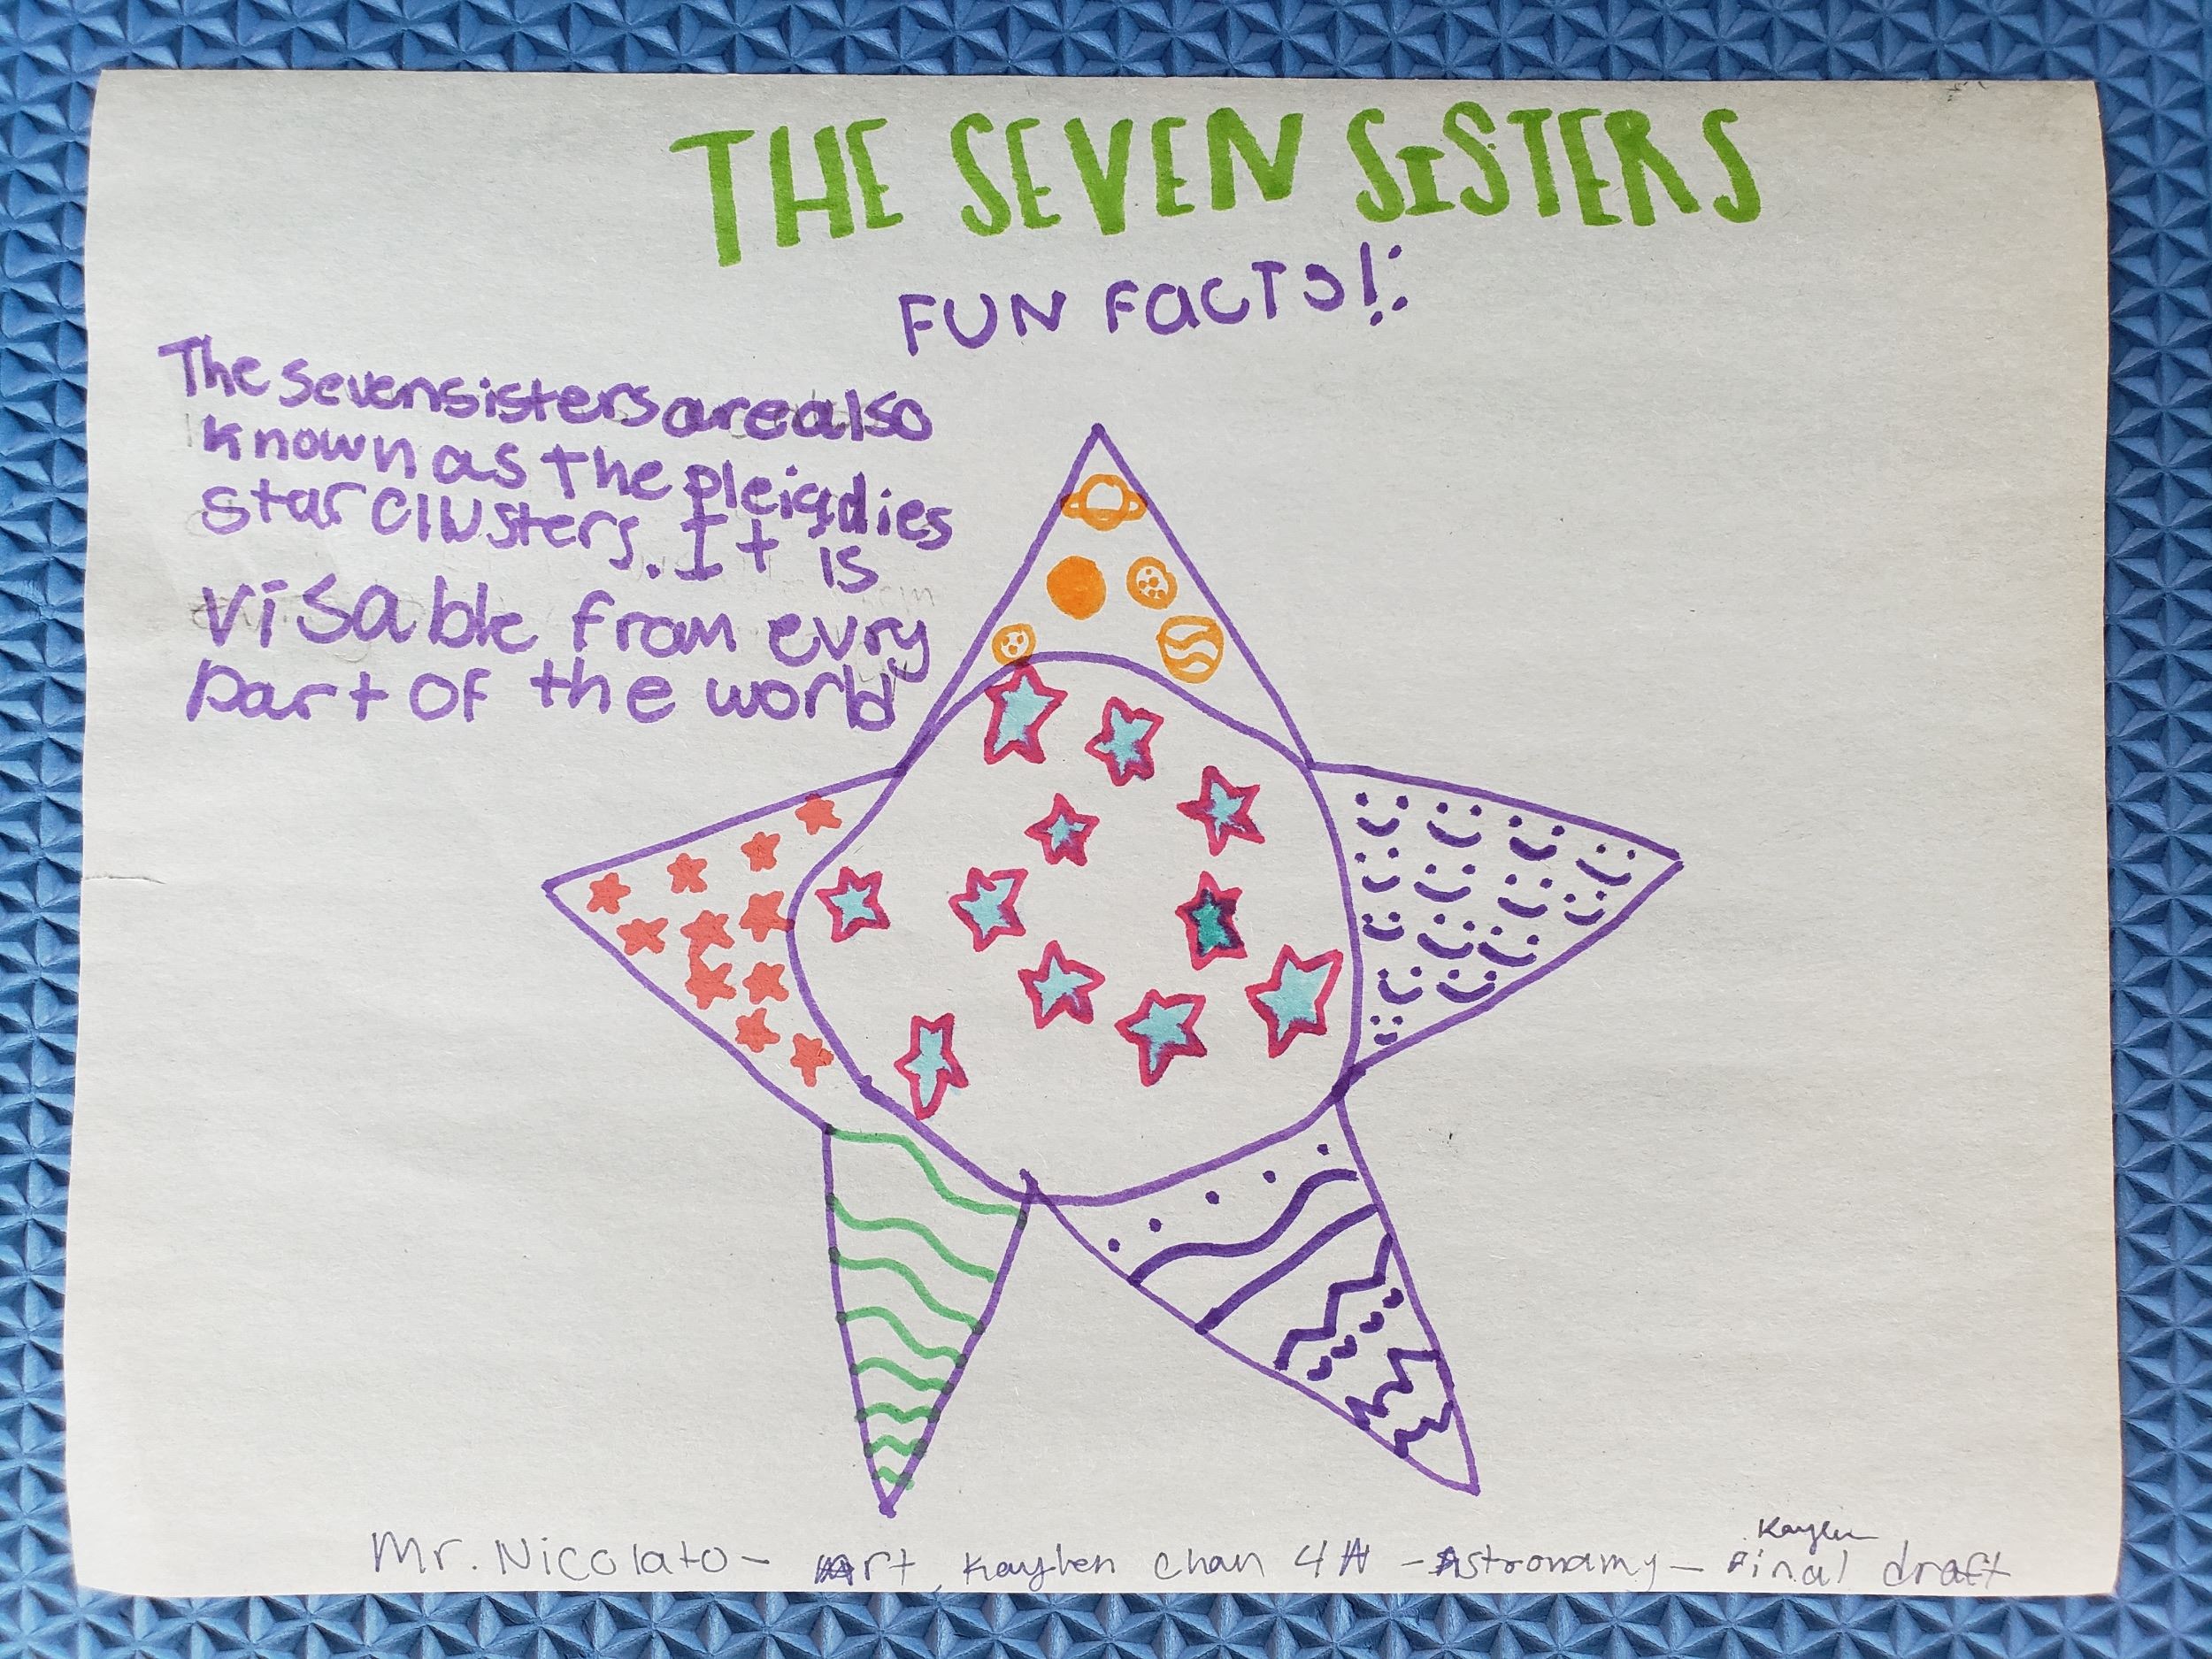 THE SEVEN SiSTERS
FUN FacTs!:
The sevensisters are also
known as the pleiadies
star clusters. It is
visable from evry
part of the world
Kaylen
Mr. Nicolato - Art, Kaylen chan 4N - Astronamy - Final draft